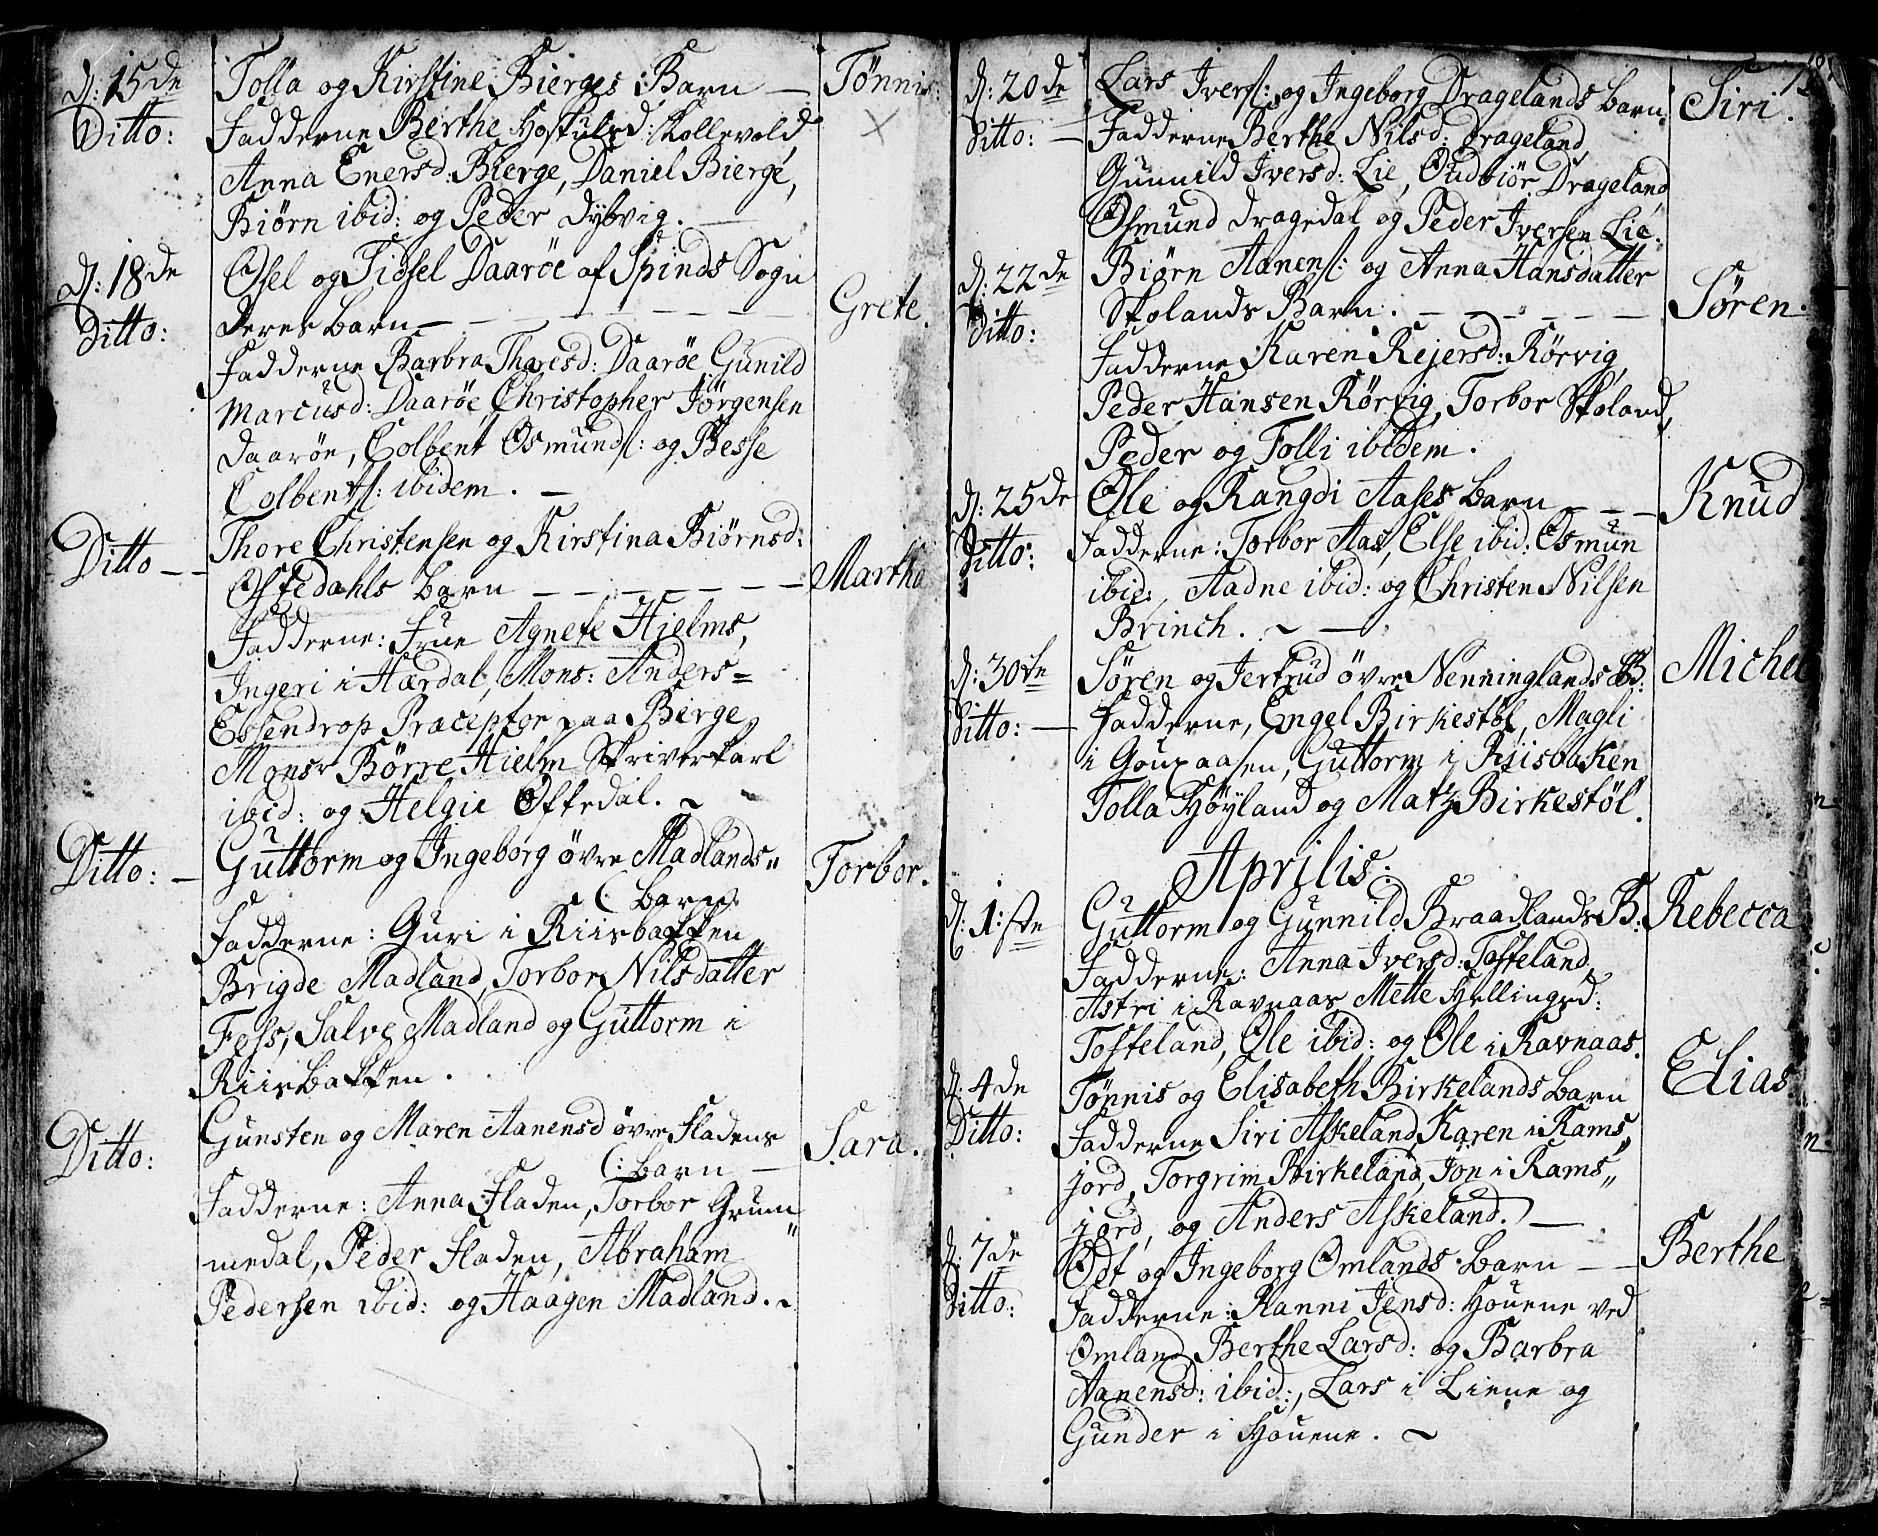 D: 15de Tolla og Kirstine Bierges Barn — Tönnis
Ditto: Fadderne Berthe Hoskuldsd: Skollevold,
Anna Enersd: Bierge, Daniel Bierge,
Biörn ibid: og Peder Dybvig. —
D: 18de Osel og Sidsel Daaröe af Spinds Sogn
Ditto: deres barn — — — — — Grete.
Fadderne Barbra Tharesd: Daaröe, Gunild
Marcusd: Daaröe, Christopher Jörgensen
Daaröe, Colbent Osmunds: og Besse
Colbents: ibidem. —
Ditto — Thore Christensen og Kirstina Biörnsd:
Oftedahls barn — — — — — Martha
Fadderne: Frue Agnete Hielms,
Ingeri i Hærdal, Mons: Anders=
Essendrop Præceptor paa Berge,
Monsr Börre Hielm Skriverkarl
ibid: og Helgie Oftedal. ~
Ditto: — Guttorm og Ingeborg övre Madlands„ Torbor.
(: barn
Fadderne: Guri i Riisbakken
Brigde Madland, Torbor Nilsdatter
Fess, Salve Madland og Guttorm i
Riisbakken.
Ditto: Gunsten og Maren Aanensd övre Fladens Sara.
(: barn —
Fadderne: Anna Fladen, Torbor Grum„
medal, Peder Fladen, Abraham
Pedersen ibid: og Haagen Madland. ~
D: 20de Lars Ivers: og Ingeborg Dragelands barn. Siri.
Ditto: — Fadderne Berthe Nilsd: Drageland,
Gunnild Iversd: Lie, Gudbiör Drageland,
Osmund Dragedal og Peder Iversen Lie.
D: 22de Biörn Aanens: og Anna Hansdatter
Ditto: Skolands Barn. — — — — — Sören.
Fadderne Karen Rejersd: Rörvig,
Peder Hansen Rörvig, Torbor Skoland,
Peder og Tolli ibidem.
D: 25de Ole og Rangdi Aases barn — — — Knud
Ditto: Fadderne: Torbor Aas, Else ibid: Osmun
ibid:, Aadne ibid: og Christen Nilsen
Brinch. ~ —
D: 30te Sören og Jertrud övre Nenninglands B: Michel
Ditto: — Fadderne, Engel Birkestöl, Magli
i Goupaasen, Guttorm i Riisbaken
Tolla Höyland og Matz Birkestöl.
Aprilis:
D: 1:ste Guttorm og Gunnild Braadlands B: Rebecca
Fadderne: Anna Iversd: Tosteland,
Astri i Ravnaas Mette Hellingsd:
Tosteland, Ole ibid: og Ole i Ravnaas.
D: 4de Tönnis og Elisabeth Birkelands barn Elias
Ditto: Fadderne Siri Askeland, Karen i Rams„
jord, Torgrim Birkeland, Jon i Rams„
jord, og Anders Askeland. —
D: 7de Odt og Ingeborg Omlands barn — — Berthe
Ditto: Fadderne: Ranni Jensd: Houene ved
Omland, Berthe Larsd: og Barbra
Aanensd: ibid:, Lars i Liene og
Gunder i Houene. ~